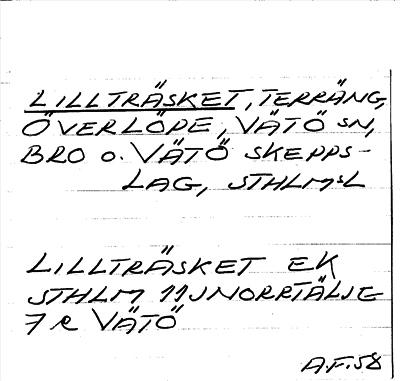 LILLTRÄSKET, TERRÄNG,
ÖVERLÖPE, VÄTÖ SN,
BRO O. VÄTÖ SKEPPS-
LAG, STHLMSL
LILLTRÄSKET EK
STHLM 11J NORRTÄLJE
7 R VÄTÖ
A.F. 58